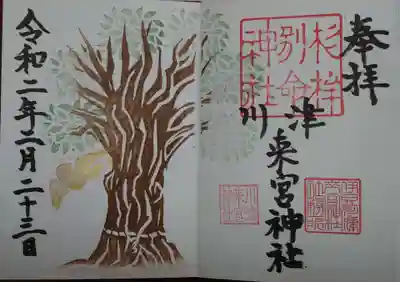 奉拝
杉桙
別命
神社
川津
来宮神社
令和二年二月二十三日